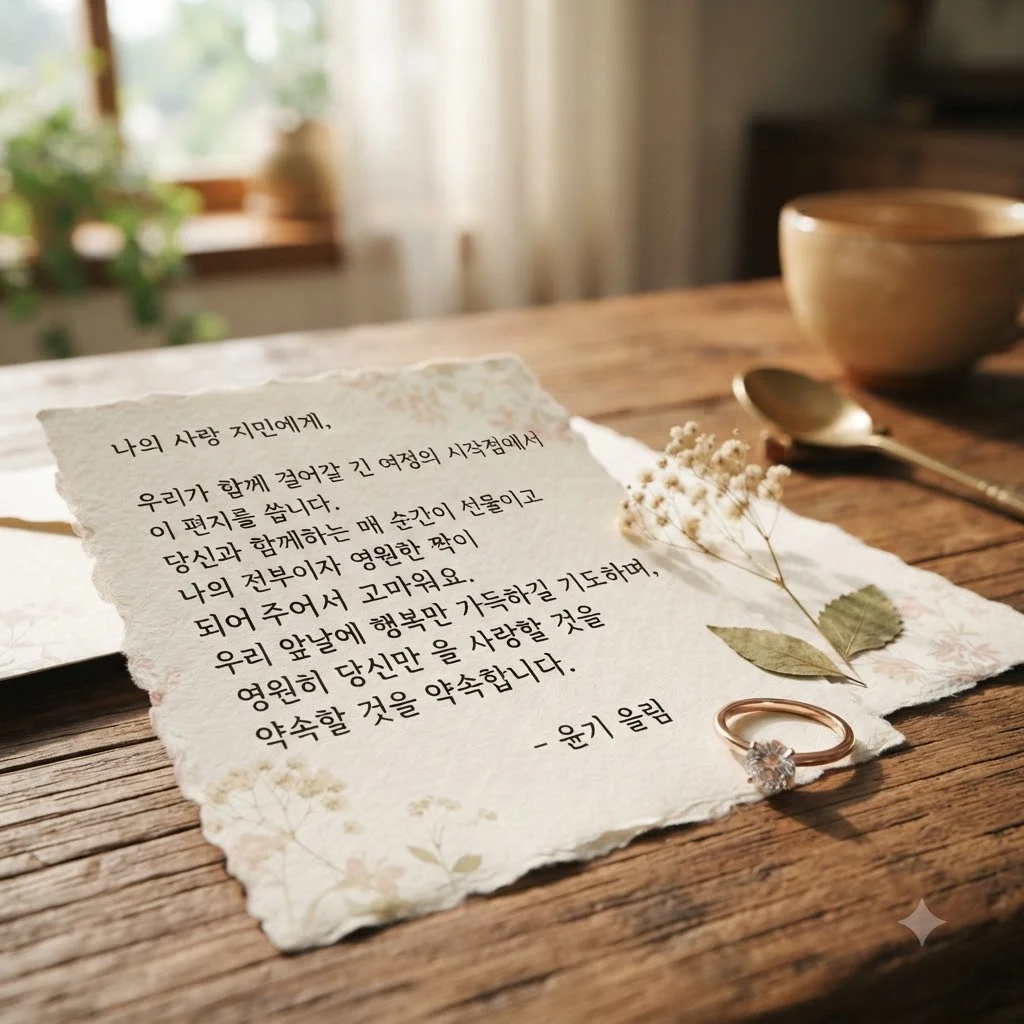 나의 사랑 지민에게,
우리가 함께 걸어갈 긴 여정의 시작점에서
이 편지를 씁니다.
당신과 함께하는 매 순간이 선물이고
나의 전부이자 영원한 짝이
되어 주어서 고마워요.
우리 앞날에 행복만 가득하길 기도하며,
영원히 당신만 을 사랑할 것을
약속할 것을 약속합니다.
- 윤기 올림